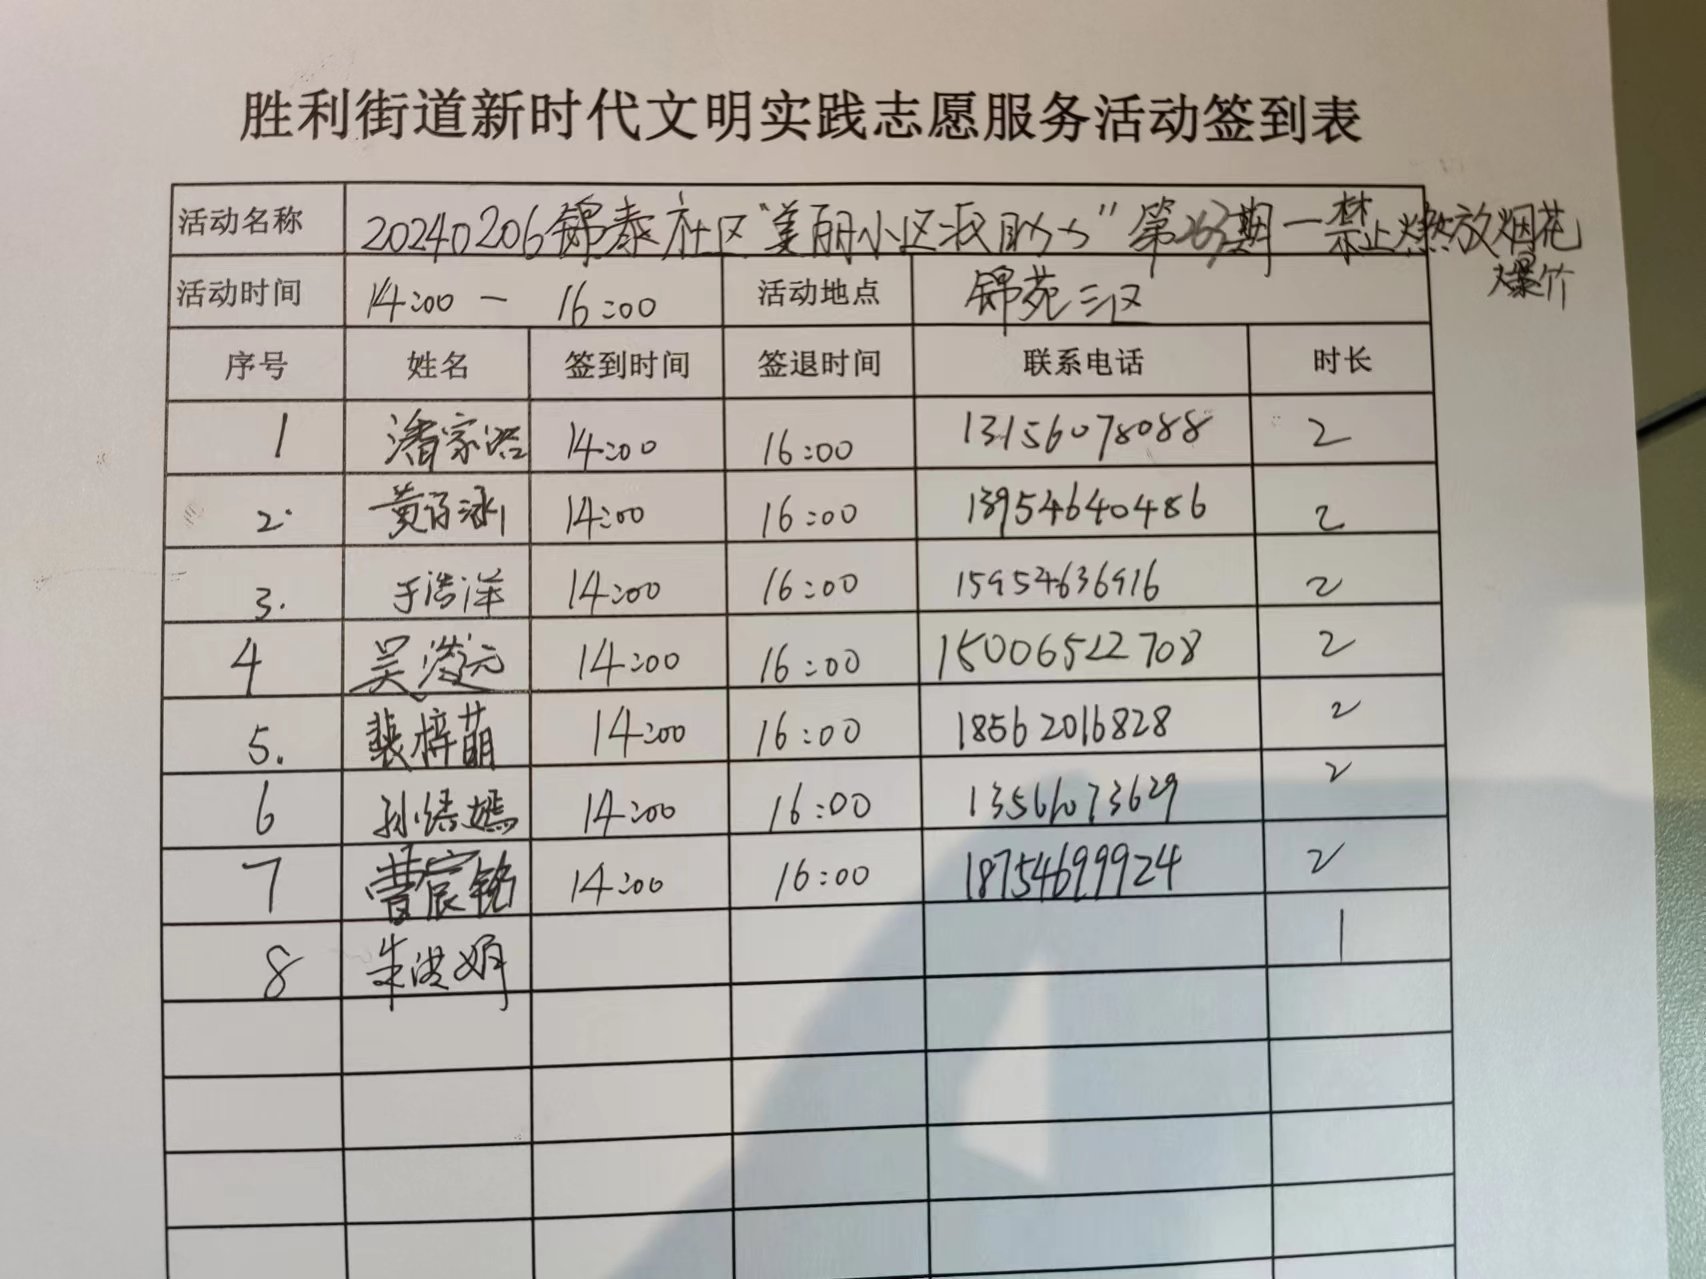 胜利街道新时代文明实践志愿服务活动签到表
活动名称 20240206锦泰社区"美丽小区我助力"第期—禁止燃放烟花
爆竹
活动时间 14:00 — 16:00 活动地点 锦苑三区
序号 姓名 签到时间 签退时间 联系电话 时长
1 潘家浩 14:00 16:00 13156078088 2
2. 黄百涵 14:00 16:00 13954640486 2
3. 于浩洋 14:00 16:00 15954636916 2
4 吴凌云 14:00 16:00 15006522708 2
5. 裴梓萌 14:00 16:00 18562016828 2
6 孙绪嫣 14:00 16:00 13561073629 2
7 曹宸铭 14:00 16:00 18754699924 2
8 朱洪娟 1